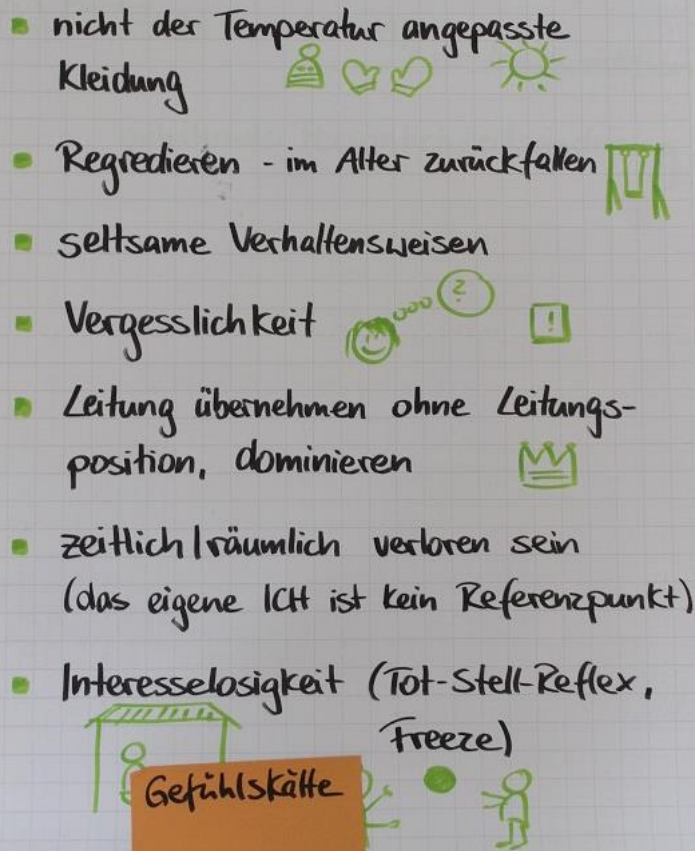 nicht der Temperatur angepasste
Kleidung
Regredieren - im Alter zurückfallen
seltsame Verhaltensweisen
?
Vergesslichkeit
!
Leitung übernehmen ohne Leitungs-
position, dominieren
zeitlich/räumlich verloren sein
(das eigene ICH ist kein Referenzpunkt)
Interesselosigkeit (Tot-Stell-Reflex,
Freeze)
Gefühlskälte